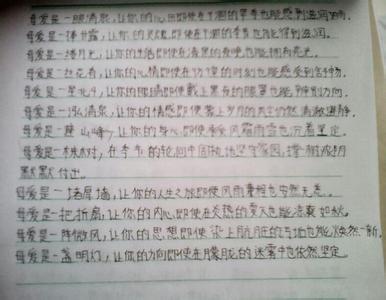 母爱是一眼清泉，让你的心田即使在干涸的旱季也能感到滋润
母爱是一捧甘露，让你的 即使在干涸的 也能得到滋润。
母爱是一缕月光，让你的生活即使在漆黑的夜晚也能拥有亮光。
母爱是一丛花香，让你的心情即使在彷徨的时刻也能感受到
母爱是一星北斗，让你的眼睛即使戴上黑布的眼罩也能辨别方向。
母爱是一泓清泉，让你的情感即使蒙上岁月的风尘仍然清澈澄净。
母爱是一座山峰，让你的身心即使承受风霜雨雪也沉着坚定。
母爱是一株树，在季节的轮回中固执地坚守家园，撑 树成荫
默默付出。
母爱是一堵厚墙，让你的人生之旅即使风雨兼程也安然无恙。
母爱是一把折扇，让你的内心即使在炎热的夏天也能凉爽如秋。
母爱是一阵微风，让你的思想即使染上肮脏的污垢也能焕然一新。
母爱是一盏明灯，让你的方向即使在朦胧的迷雾中也依然坚定。